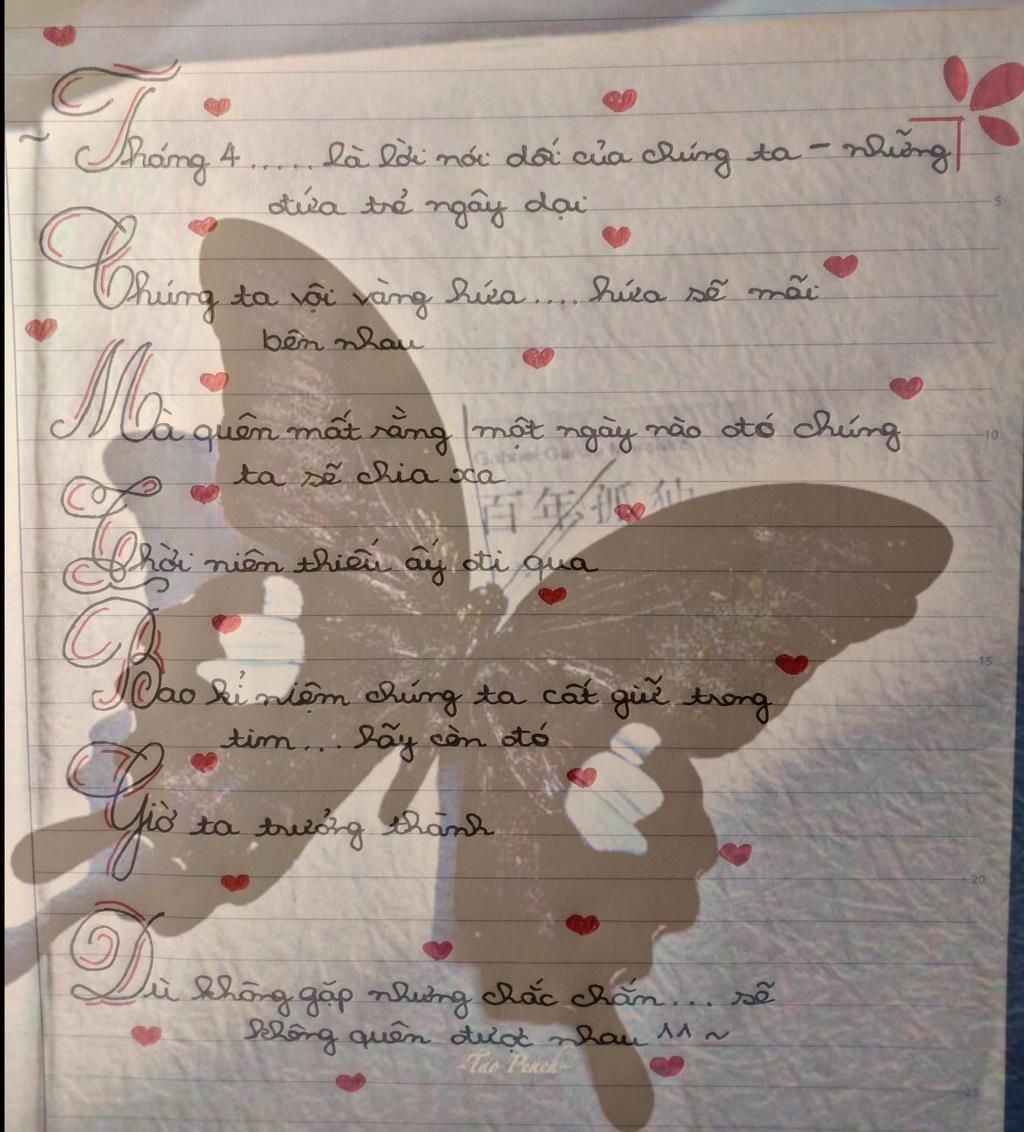 ~ Tháng 4...... là lời nói dối của chúng ta - những
5
đứa trẻ ngây dại
Chúng ta vội vàng hứa.... hứa sẽ mãi
bên nhau
Mà quên mất rằng một ngày nào đó chúng
10
ta sẽ chia xa
百年孤独
Thời niên thiếu ấy đi qua
15
Bao kỉ niệm chúng ta cất giữ trong
tim... hãy còn đó
Giờ ta trưởng thành
20
Dù không gặp nhưng chắc chắn... sẽ
không quên được nhau ^^ ~
-Táo Peach-
25